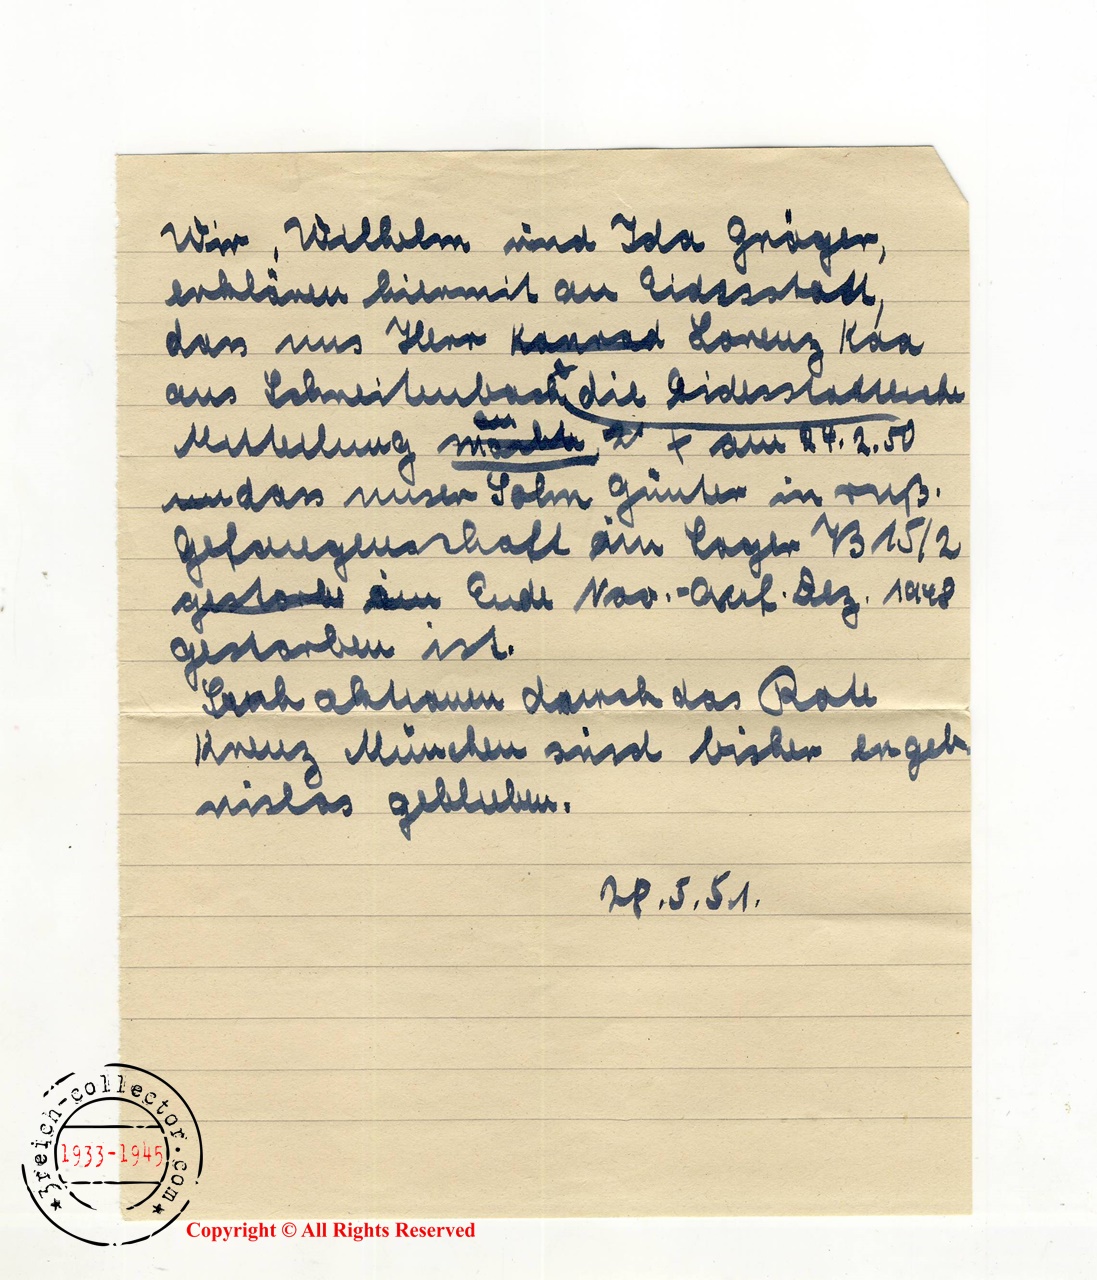 Wir, Wilhelm und Ida Gröger,
erklären hiermit an Eidesstatt,
dass uns Herr Konrad Lorenz Kaa
aus Schneitenbach die Eidesstattliche
Mitteilung machte am 24.2.50
dass unser Sohn Günter in ruß.
Gefangenschaft im Lager VB 15/2
gestorbe im Ende Nov.-Anf. Dez. 1948
gestorben ist.
durch das Rote
Kreuz München sind bisher ergeb-
nislos geblieben.
28.5.51.
3reich-collector.com
1933-1945
Copyright © All Rights Reserved